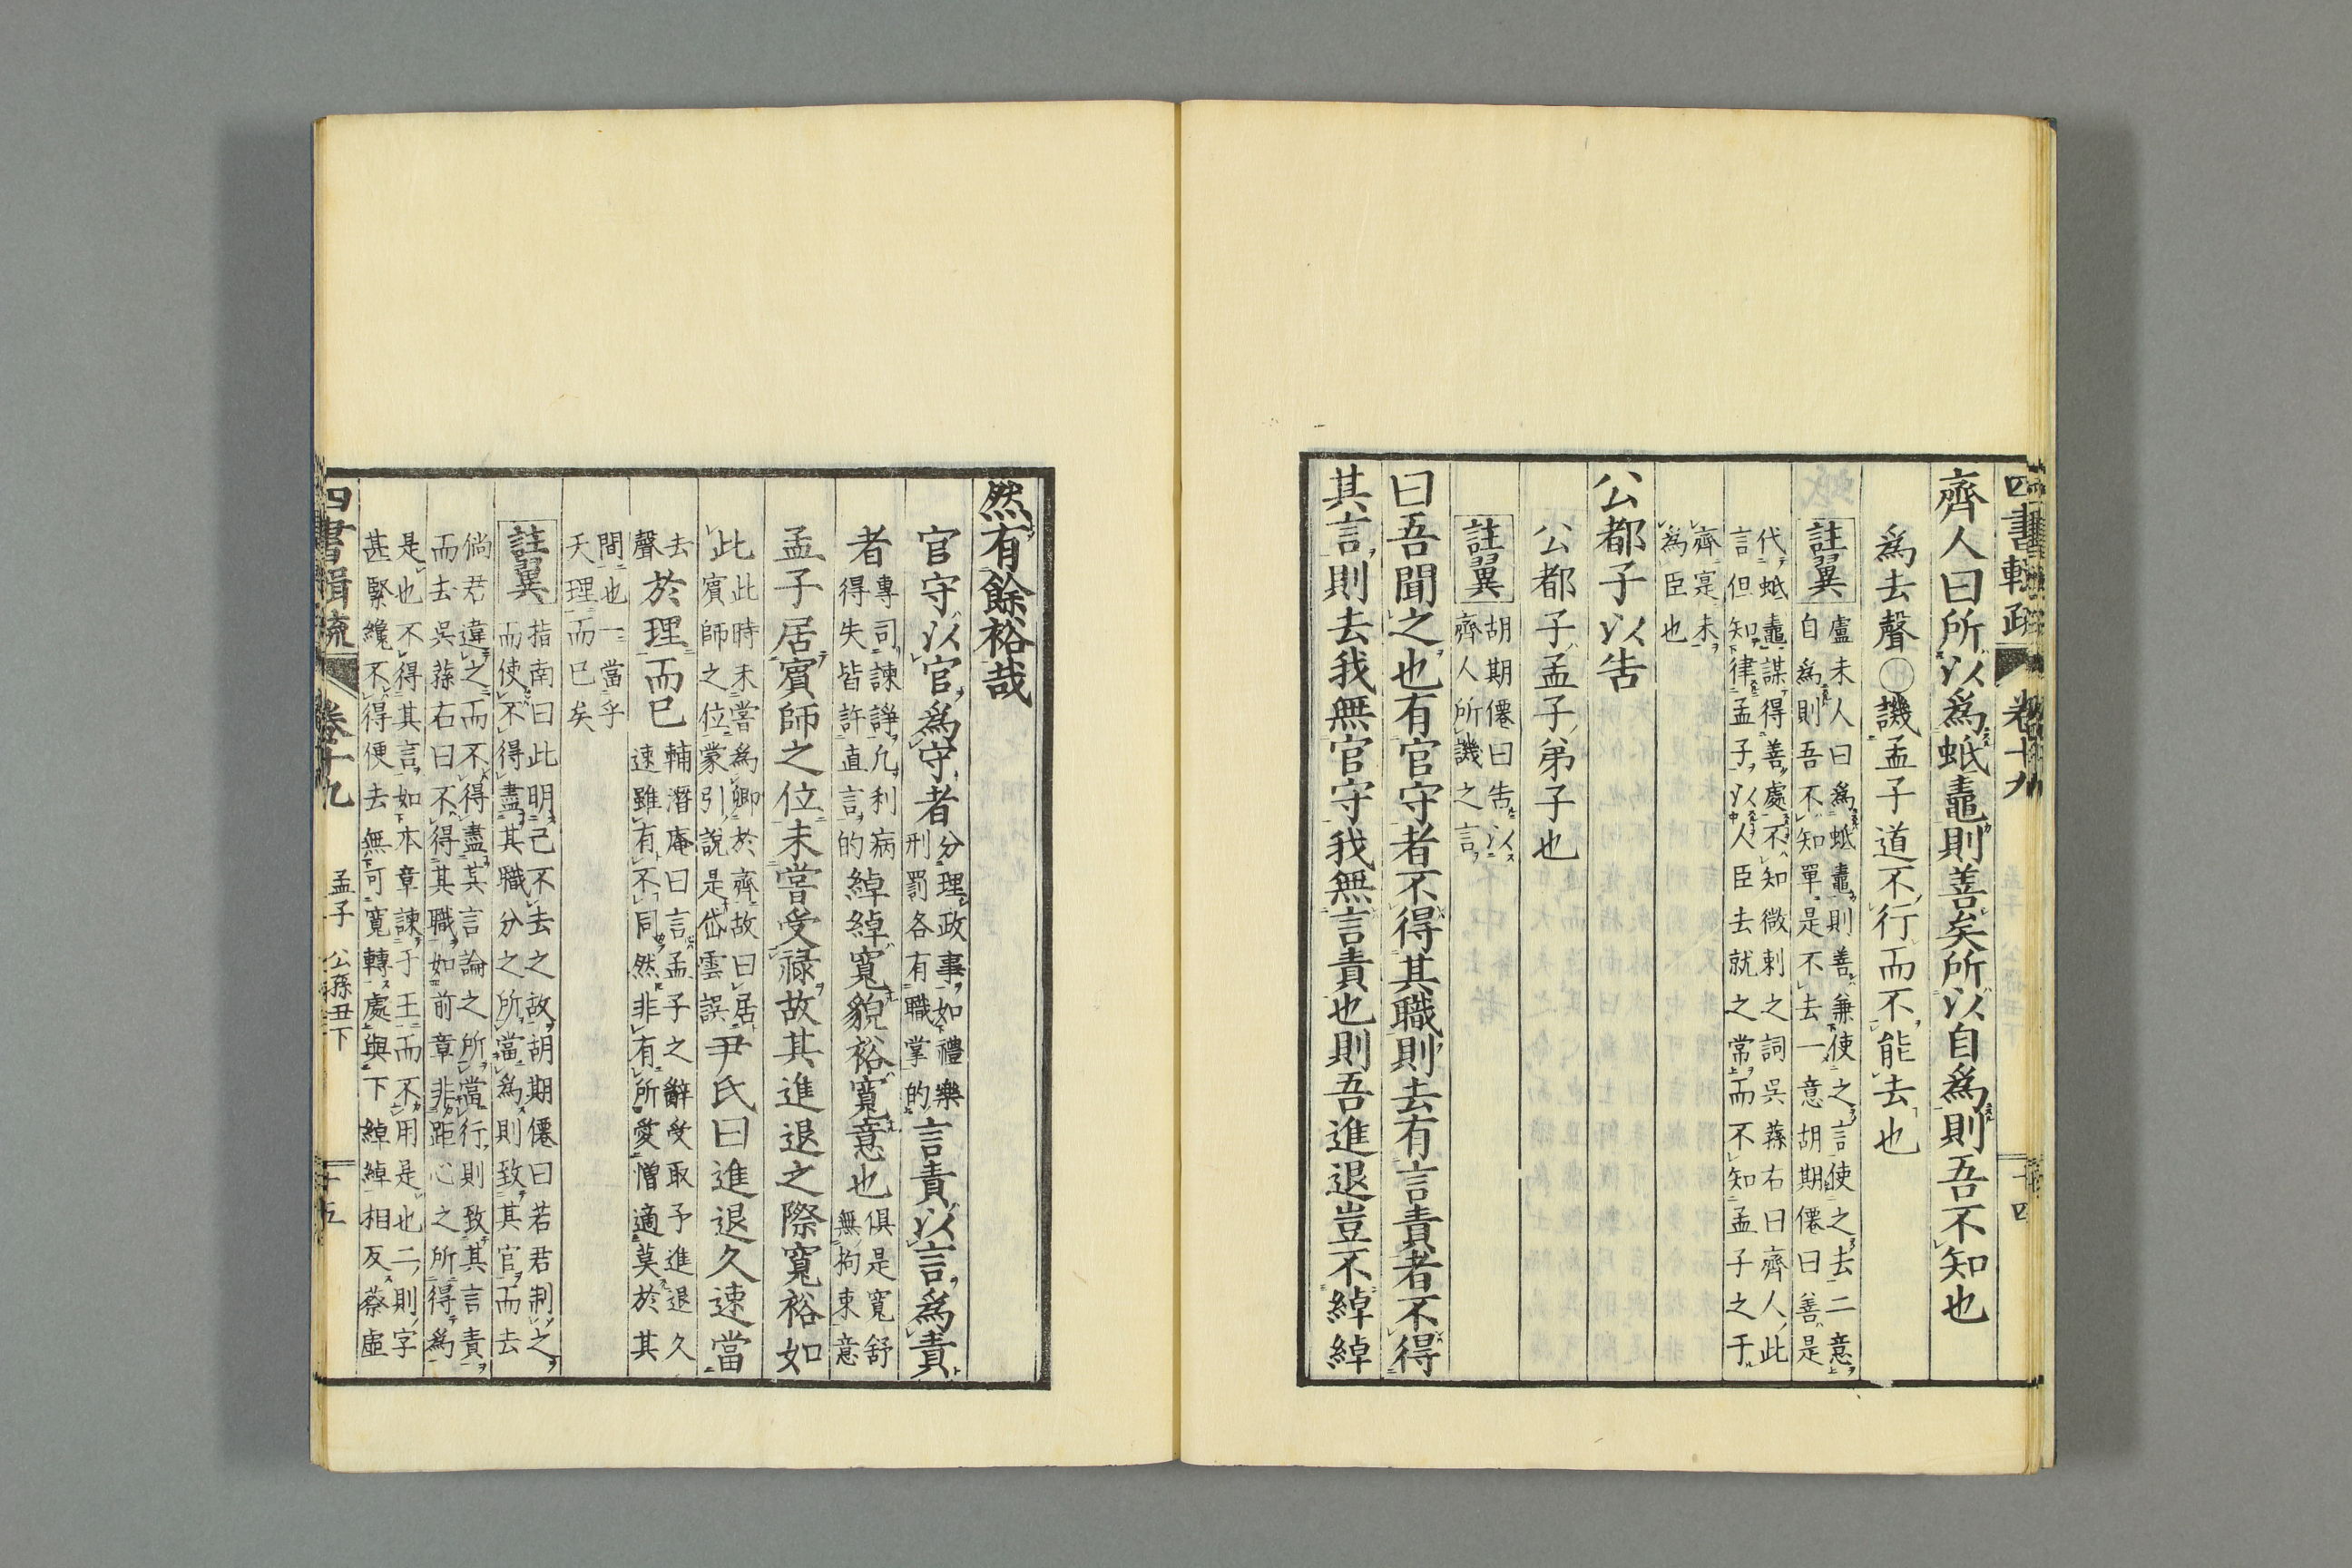 四書輯疏 卷十九 十四
齊人曰所以爲蚳鼃則善矣所以自爲則吾不知也
爲去聲〇譏孟子道不行而不能去也
註翼
盧未人曰爲蚳鼃則善兼使之言使之去二意
自爲則吾不知單是不去一意胡期僊曰善是
代蚳鼃謀得善處不知微刺之詞吳蓀右曰齊人此
言但知律孟子以人臣去就之常而不知孟子之于
齊寔未
爲臣也
公都子以告
公都子孟子弟子也
註翼
胡期僊曰告以
齊人所譏之言
曰吾聞之也有官守者不得其職則去有言責者不得
其言則去我無官守我無言責也則吾進退豈不綽綽
然有餘裕哉
官守以官爲守者
分理政事如禮樂
刑罰各有職掌的
言責以言爲責
者
專司諫諍凡利病
得失皆許直言的
綽綽寬貌裕寬意也
俱是寬舒
無拘束意
孟子居賓師之位未嘗受祿故其進退之際寬裕如
此
此時未嘗爲卿於齊故曰居
賓師之位蒙引說是岱雲誤
尹氏曰進退久速當
去
聲
於理而已
輔潛庵曰言孟子之辭受取予進退久
速雖有不同然非有所愛憎適莫於其
間也一當乎
天理而已矣
註翼
指南曰此明己不去之故胡期僊曰若君制之
而使不得盡其職分之所當爲則致其官而去
倘君違之而不得盡其言論之所當行則致其言責
而去吳蓀右曰不得其職如前章非距心之所得爲
是也不得其言如本章諫于王而不用是也二則字
甚緊纔不得便去無可寬轉處與下綽綽相反蔡虛
四書輯疏 卷十九 孟子 公孫丑下 十五